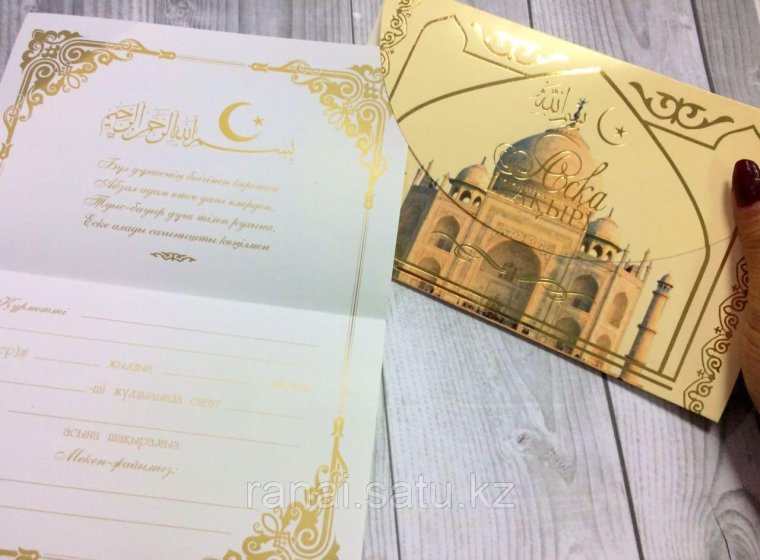 بسم الله الرحمن الرحيم
Бұл дүниенің бейінен көрінген
Абзал адам өтсе үағы өмірден,
Туыс-бауыр дұға тілеп рухына,
Еске алады сағынышты көңілмен
Құрметті
ер)ді жылдың
-ші жұлдызында сағат
асына шақырамыз.
Мекен-жайымыз:
بسم الله
Асқа
ШАҚЫРУ
ranai.satu.kz